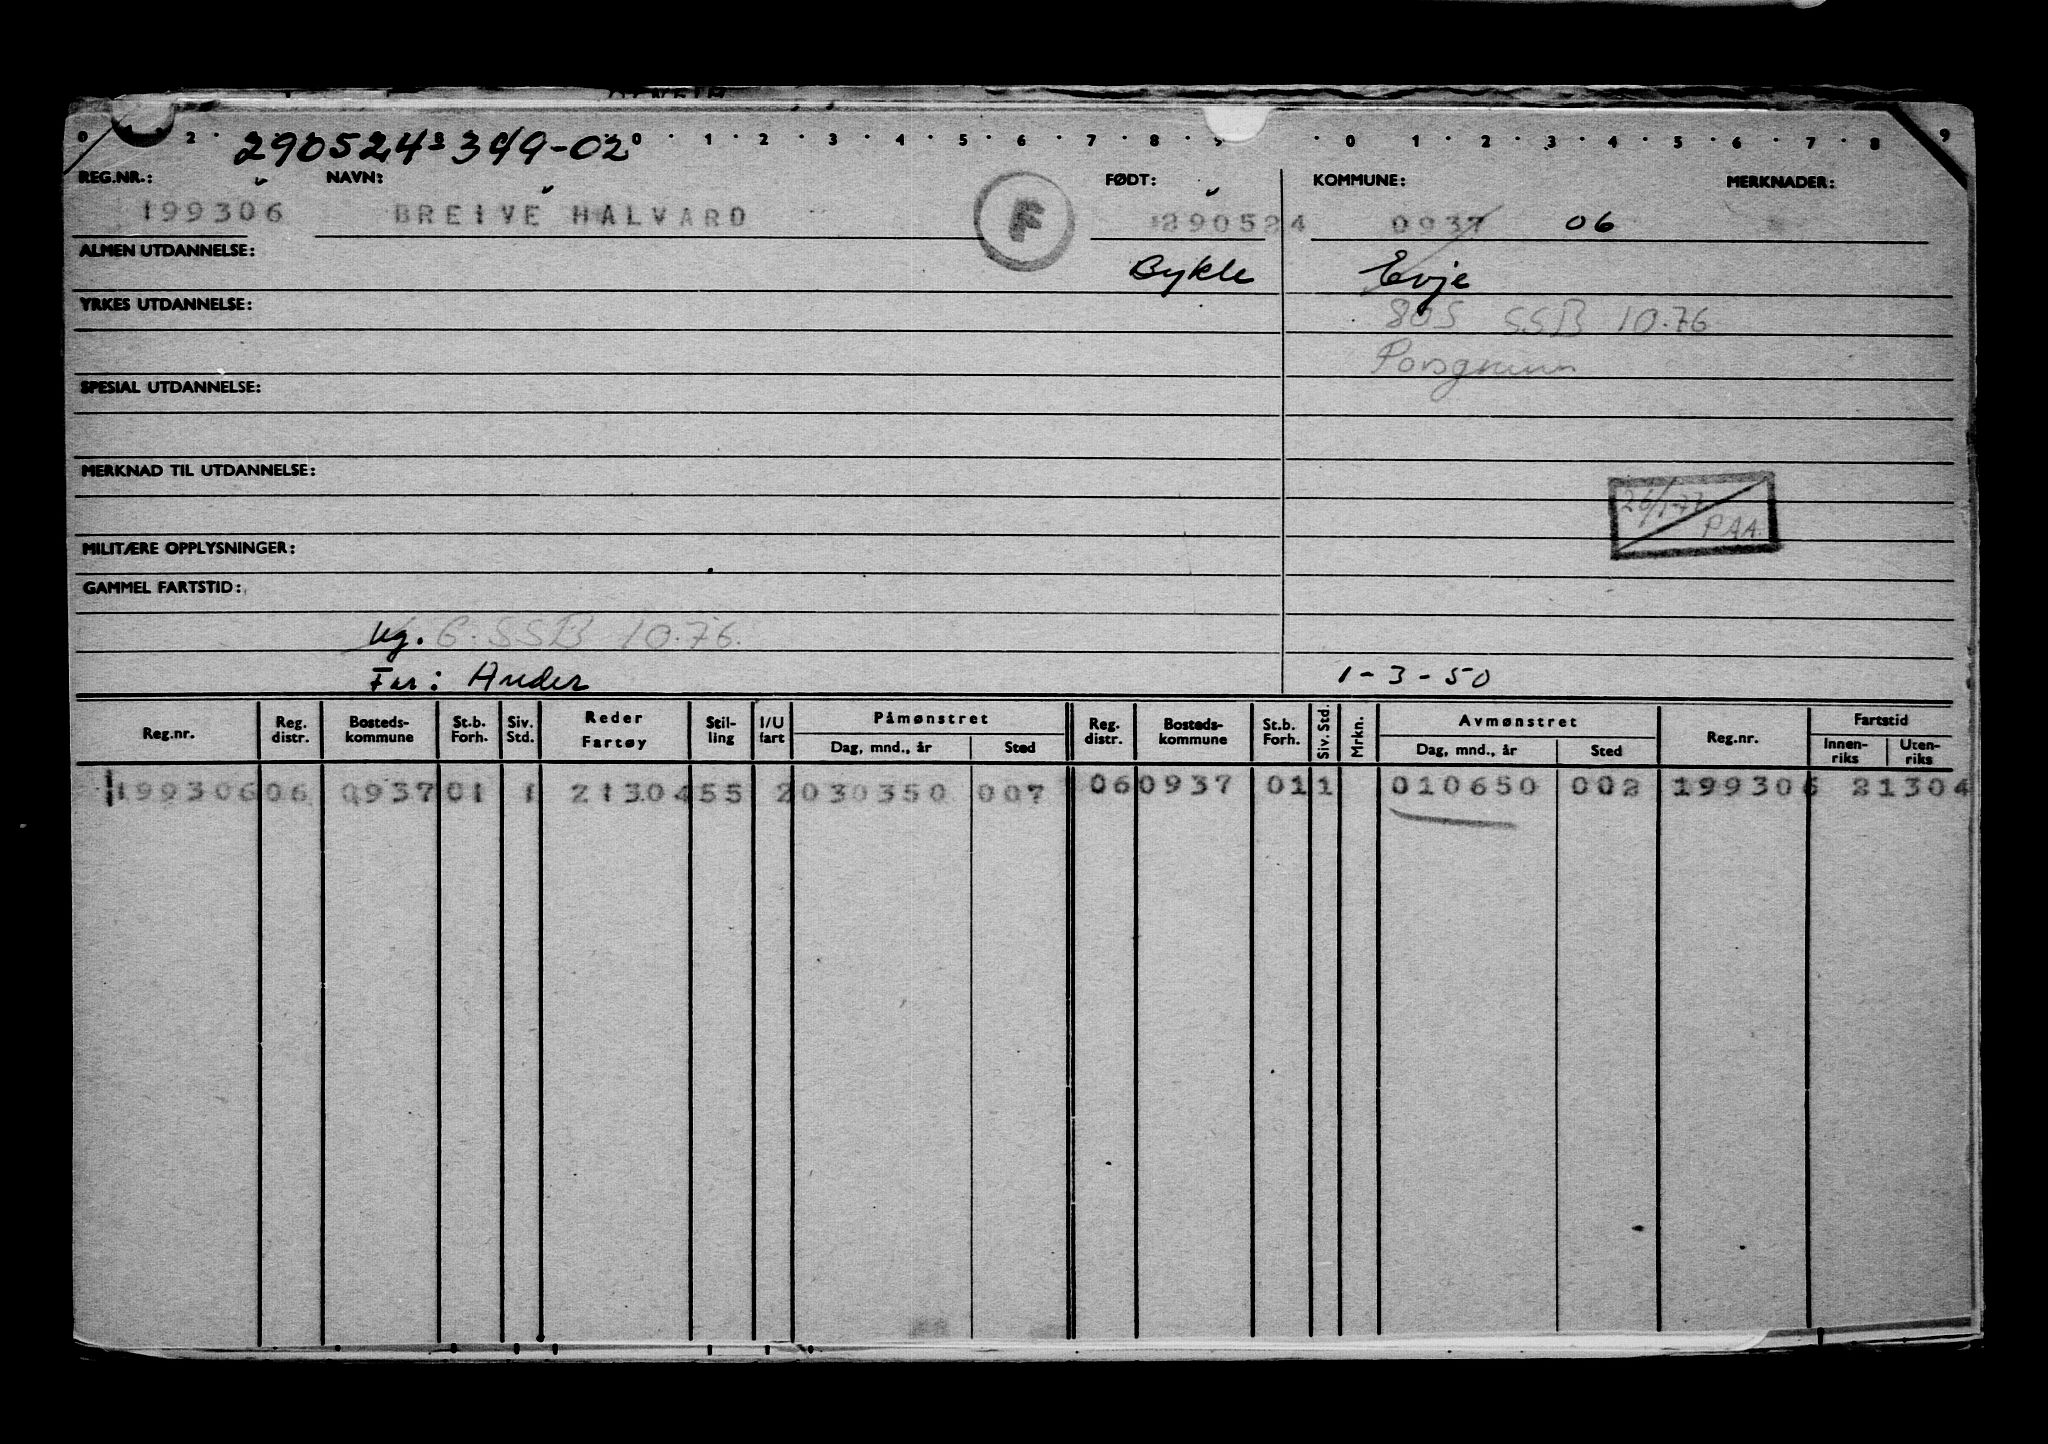 0 1 2 290524 3 349-02 0 1 2 3 4 5 6 7 8 9 0 1 2 3 4 5 6 7 8 9
REG.NR.: NAVN: FØDT: KOMMUNE: MERKNADER:
199306 BREIVE HALVARD F 290524 0937 06
ALMEN UTDANNELSE: Bykle Evje
YRKES UTDANNELSE: 805 SSB 10.76
Porsgrunn
SPESIAL UTDANNELSE:
MERKNAD TIL UTDANNELSE:
26/1-77 PAA.
MILITÆRE OPPLYSNINGER:
GAMMEL FARTSTID:
Ug. G. SSB 10.76.
Far: Ander 1-3-50
Reg.nr. Reg. distr. Bosteds-kommune St.b. Forh. Siv. Std. Reder Fartøy Stil-ling I/U fart Påmønstret Dag, mnd., år Sted Reg. distr. Bosteds-kommune St.b. Forh. Siv. Std. Mrkn. Avmønstret Dag, mnd., år Sted Reg.nr. Fartstid Innen-riks Uten-riks
199306 06 0937 01 1 21304 55 2 030350 007 06 0937 01 1 010650 002 199306 21304